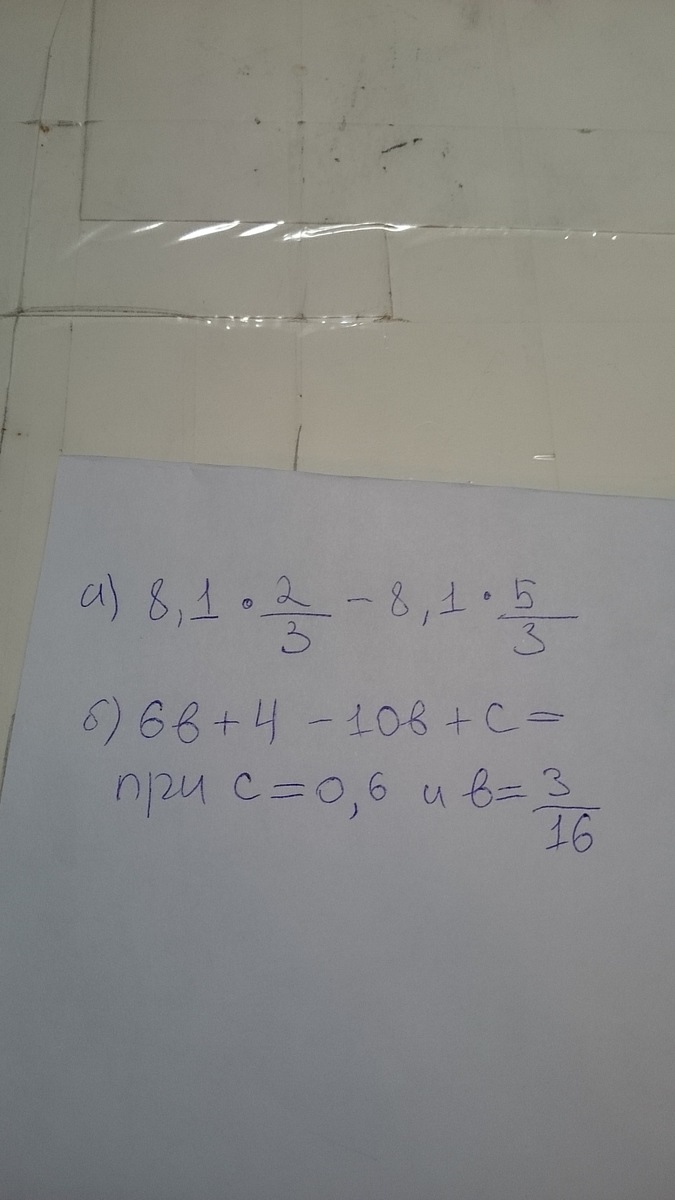 а) 8,1 · 2/3 - 8,1 · 5/3
б) 6в + 4 - 10в + с =
при с = 0,6 и в = 3/16